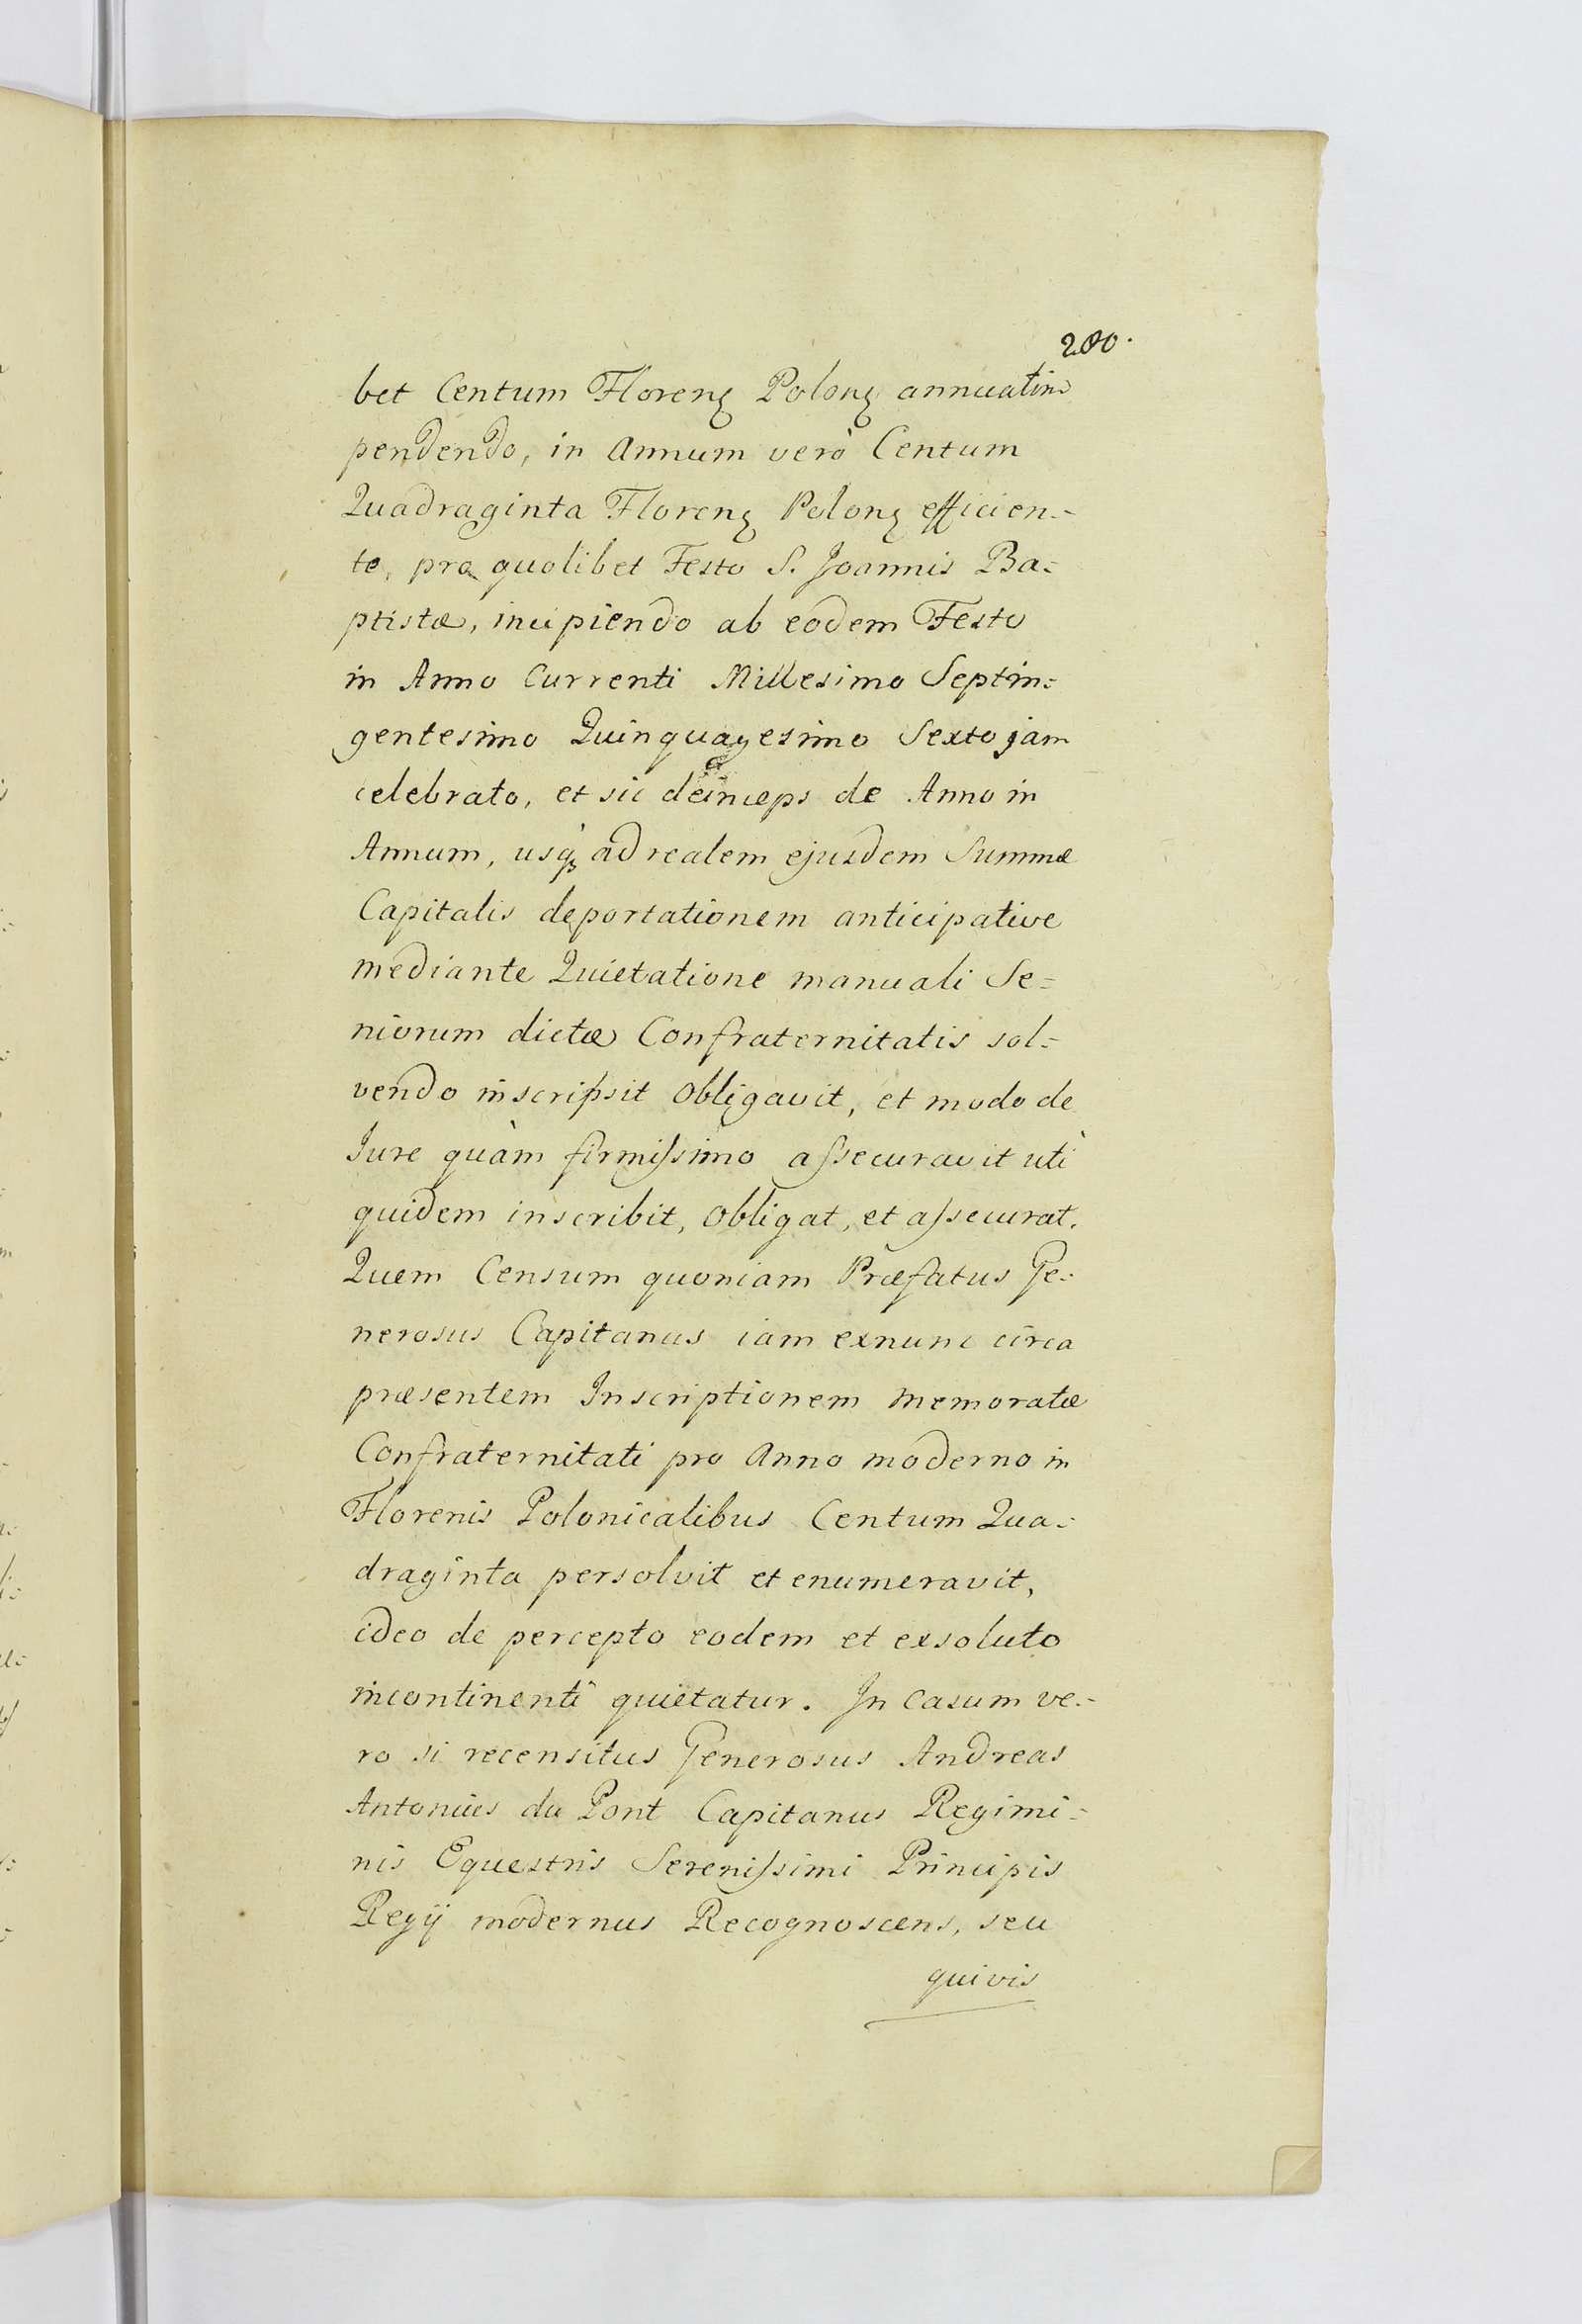 280.
bet Centum Floren Polon annuatim
pendendo, in Annum verò Centum
Quadraginta Floren Polon efficien=
te, pro quolibet Festo S. Joannis Ba=
ptistæ, incipiendo ab eodem Festo
in Anno Currenti Millesimo Septin=
gentesimo Quinquagesimo Sexto jam
celebrato, et sic deinceps de Anno in
Annum, usq; ad realem ejusdem Summæ
Capitalis deportationem anticipative
mediante Quietatione manuali Se=
niorum dictæ Confraternitatis sol=
vendo inscripsit obligavit, et modo de
Jure quàm firmissimo assecuravit uti
quidem inscribit, obligat, et assecurat.
Quem Censum quoniam Præfatus Ge=
nerosus Capitanus iam exnunc circa
præsentem Inscriptionem memoratæ
Confraternitati pro Anno moderno in
Florenis Polonicalibus Centum Qua=
draginta persolvit et enumeravit,
ideo de percepto eodem et exsoluto
incontinenti quietatur. In Casum ve=
ro si recensitus Generosus Andreas
Antonius du Pont Capitanus Regimi=
nis Equestris Serenissimi Principis
Regij modernus Recognoscens, seu
quivis